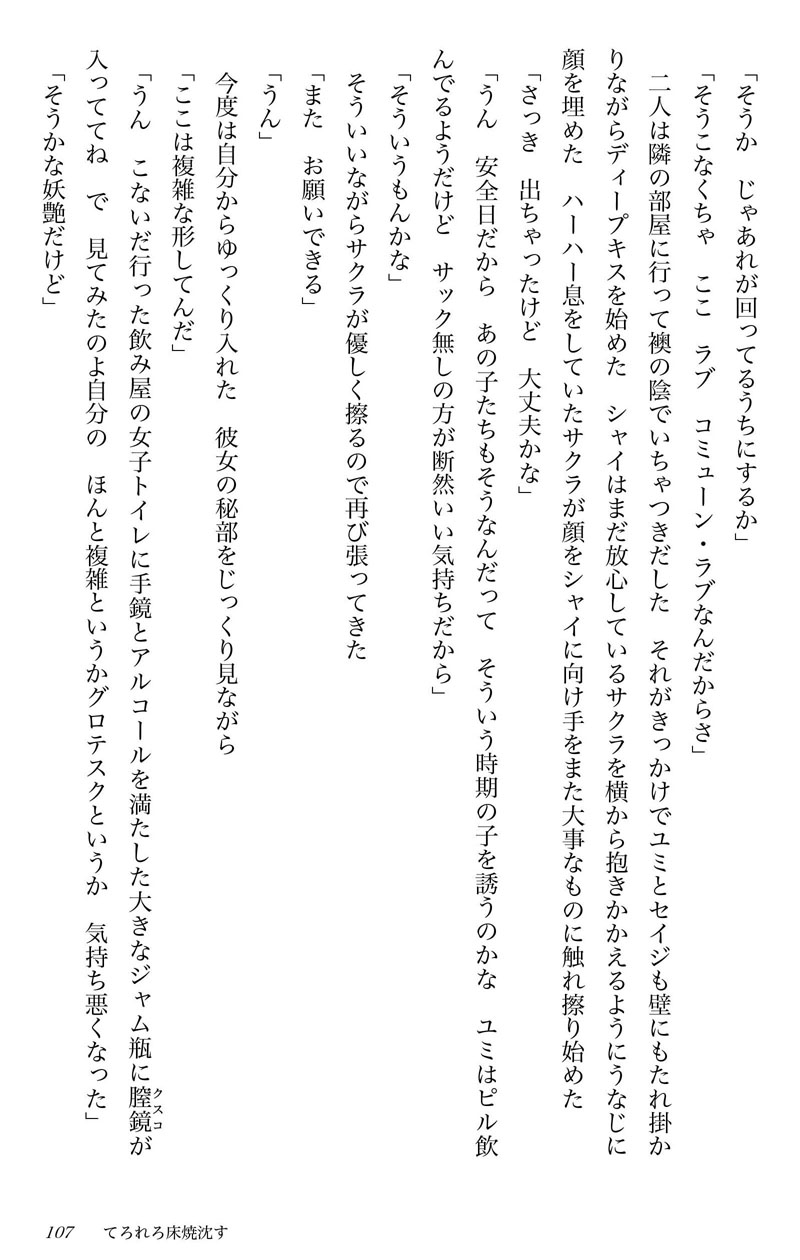 「そうか　じゃあれが回ってるうちにするか」
「そうこなくちゃ　ここ　ラブ　コミューン・ラブなんだからさ」
二人は隣の部屋に行って襖の陰でいちゃつきだした　それがきっかけでユミとセイジも壁にもたれ掛か
りながらディープキスを始めた　シャイはまだ放心しているサクラを横から抱きかかえるようにうなじに
顔を埋めた　ハーハー息をしていたサクラが顔をシャイに向け手をまた大事なものに触れ擦り始めた
「さっき　出ちゃったけど　大丈夫かな」
「うん　安全日だから　あの子たちもそうなんだって　そういう時期の子を誘うのかな　ユミはピル飲
んでるようだけど　サック無しの方が断然いい気持ちだから」
「そういうもんかな」
そういいながらサクラが優しく擦るので再び張ってきた
「また　お願いできる」
「うん」
今度は自分からゆっくり入れた　彼女の秘部をじっくり見ながら
「ここは複雑な形してんだ」
「うん　こないだ行った飲み屋の女子トイレに手鏡とアルコールを満たした大きなジャム瓶に膣鏡が
クスコ
入っててね　で　見てみたのよ自分の　ほんと複雑というかグロテスクというか　気持ち悪くなった」
「そうかな妖艶だけど」
107　てろれろ床焼沈す